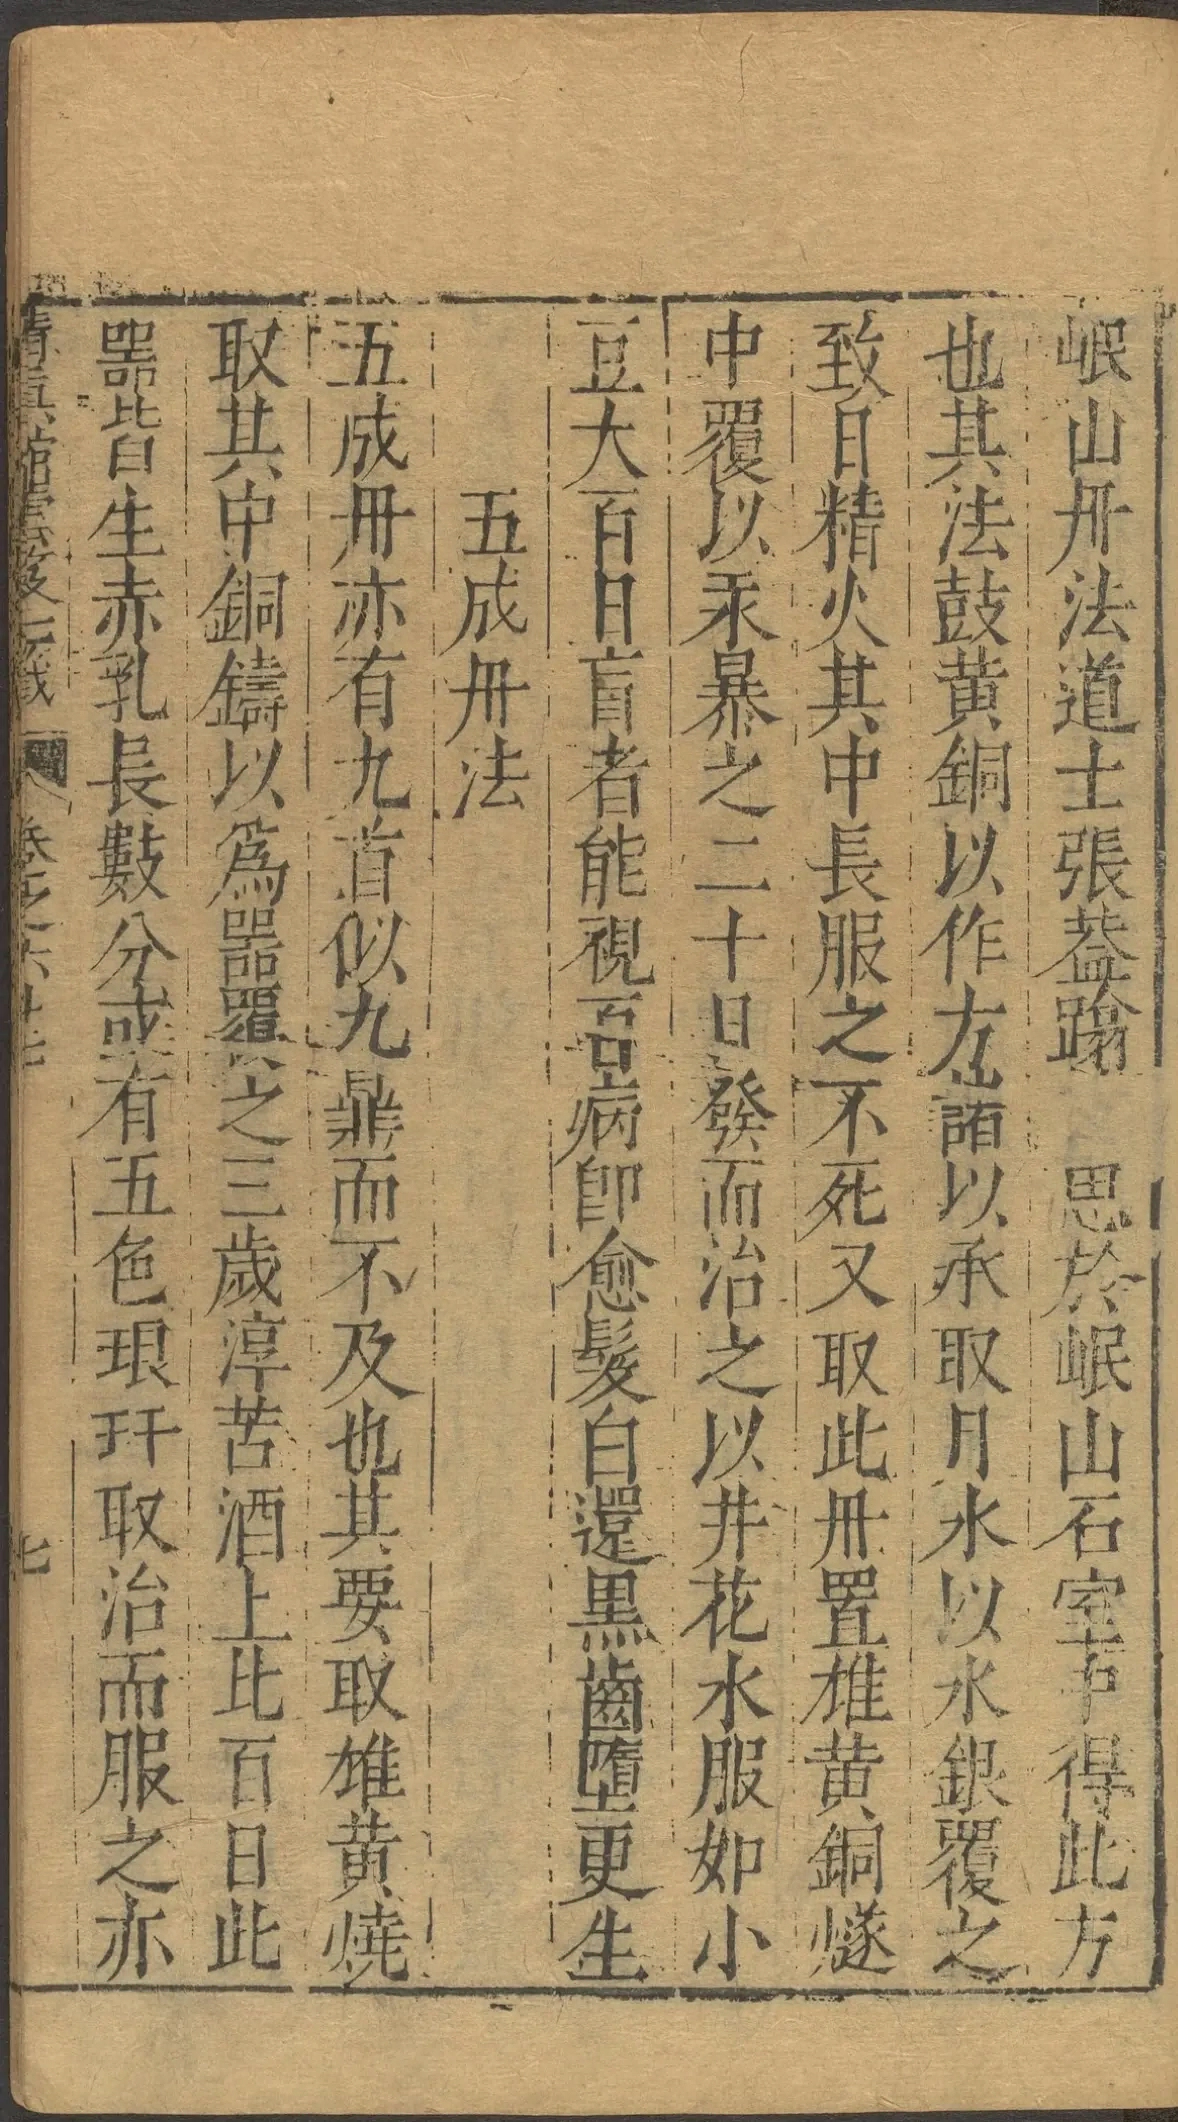 岷山丹法道士張葢蹹　思於岷山石室中得此方
也其法鼓黃銅以作方諸以承取月水以水銀覆之
致日精火其中長服之不死又取此丹置雄黃銅燧
中覆以汞暴之二十日發而治之以井花水服如小
豆大百日盲者能視百病卽愈髮白還黑齒墮更生
五成丹法
五成丹亦有九首似九鼎而不及也其要取雄黃燒
取其中銅鑄以爲噐覆之三歲淳苦酒上比百日此
噐皆生赤乳長數分或有五色琅玕取治而服之亦
清真館雲笈七籤　卷之六十七　七